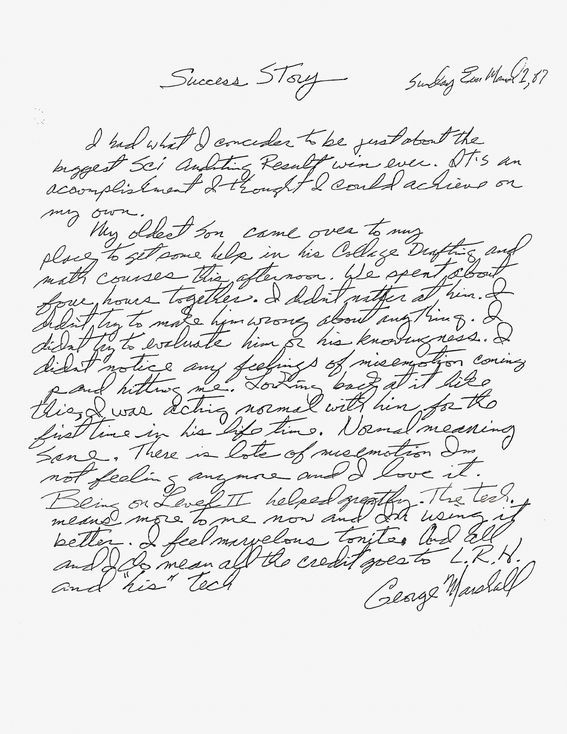 Success Story
Sunday Eve March 1, 87
I had what I concider to be just about the
biggest Sci Auditing Result win ever. It's an
accomplishment I thought I could achieve on
my own.
My oldest son came over to my
place to get some help in his Collage Drafting and
math courses this afternoon. We spent about
four hours together. I didn't natter at him. I
didn't try to make him wrong about anything. I
didn't try to evaluate him or his knowingness. I
didn't notice any feelings of misemotion coming
up and hitting me. Looking back at it like
this, I was acting normal with him for the
first time in his life time. Normal meaning
sane. There is lots of misemotion I'm
not feeling anymore and I love it.
Being on Level II helped greatly. The tech
means more to me now and I'm using it
better. I feel marvelous tonite. And all
and I do mean all the credit goes to L.R.H.
and "his" Tech
George Marshall